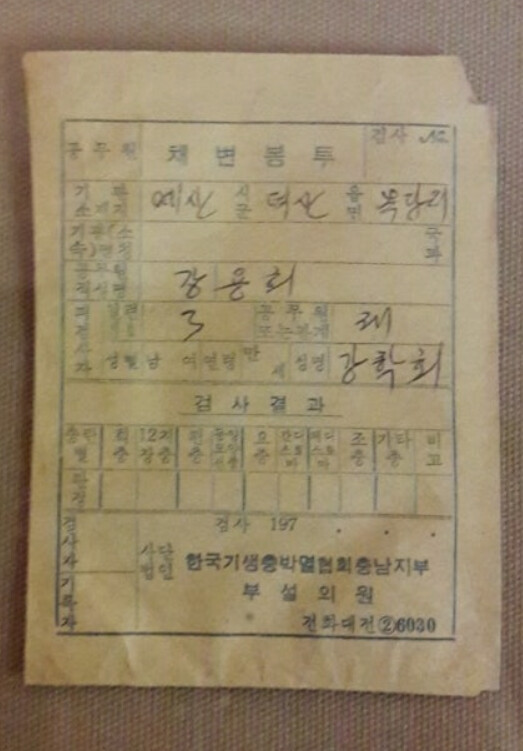 공무원 채변봉투 검사 No.
기관소재지 예산 시군 덕산 읍면 복당리
기관(소속)명칭 국과
공무원직성명 강용희
피 검 사 자 3 공무원또는관계
성별 남 여 연령 만 세 성명 강학희
검사결과
충란별 회충 12지장충 편충 동양모양선충 요충 간디스토마 폐디스토마 조충 기타충 비고
판정
검사자 검사 197 . . .
사단법인 한국기생충박멸협회충남지부
기록자 부설의원
전화대전②6030